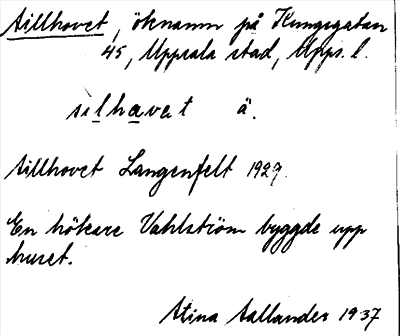 Sillhovet, öknamn på Kungsgatan
45, Uppsala stad, Upps. l.
silhavet ä.
Sillhovet Langenfelt 1929.
En hökare Vahlström byggde upp
huset.
Stina Sallander 1937